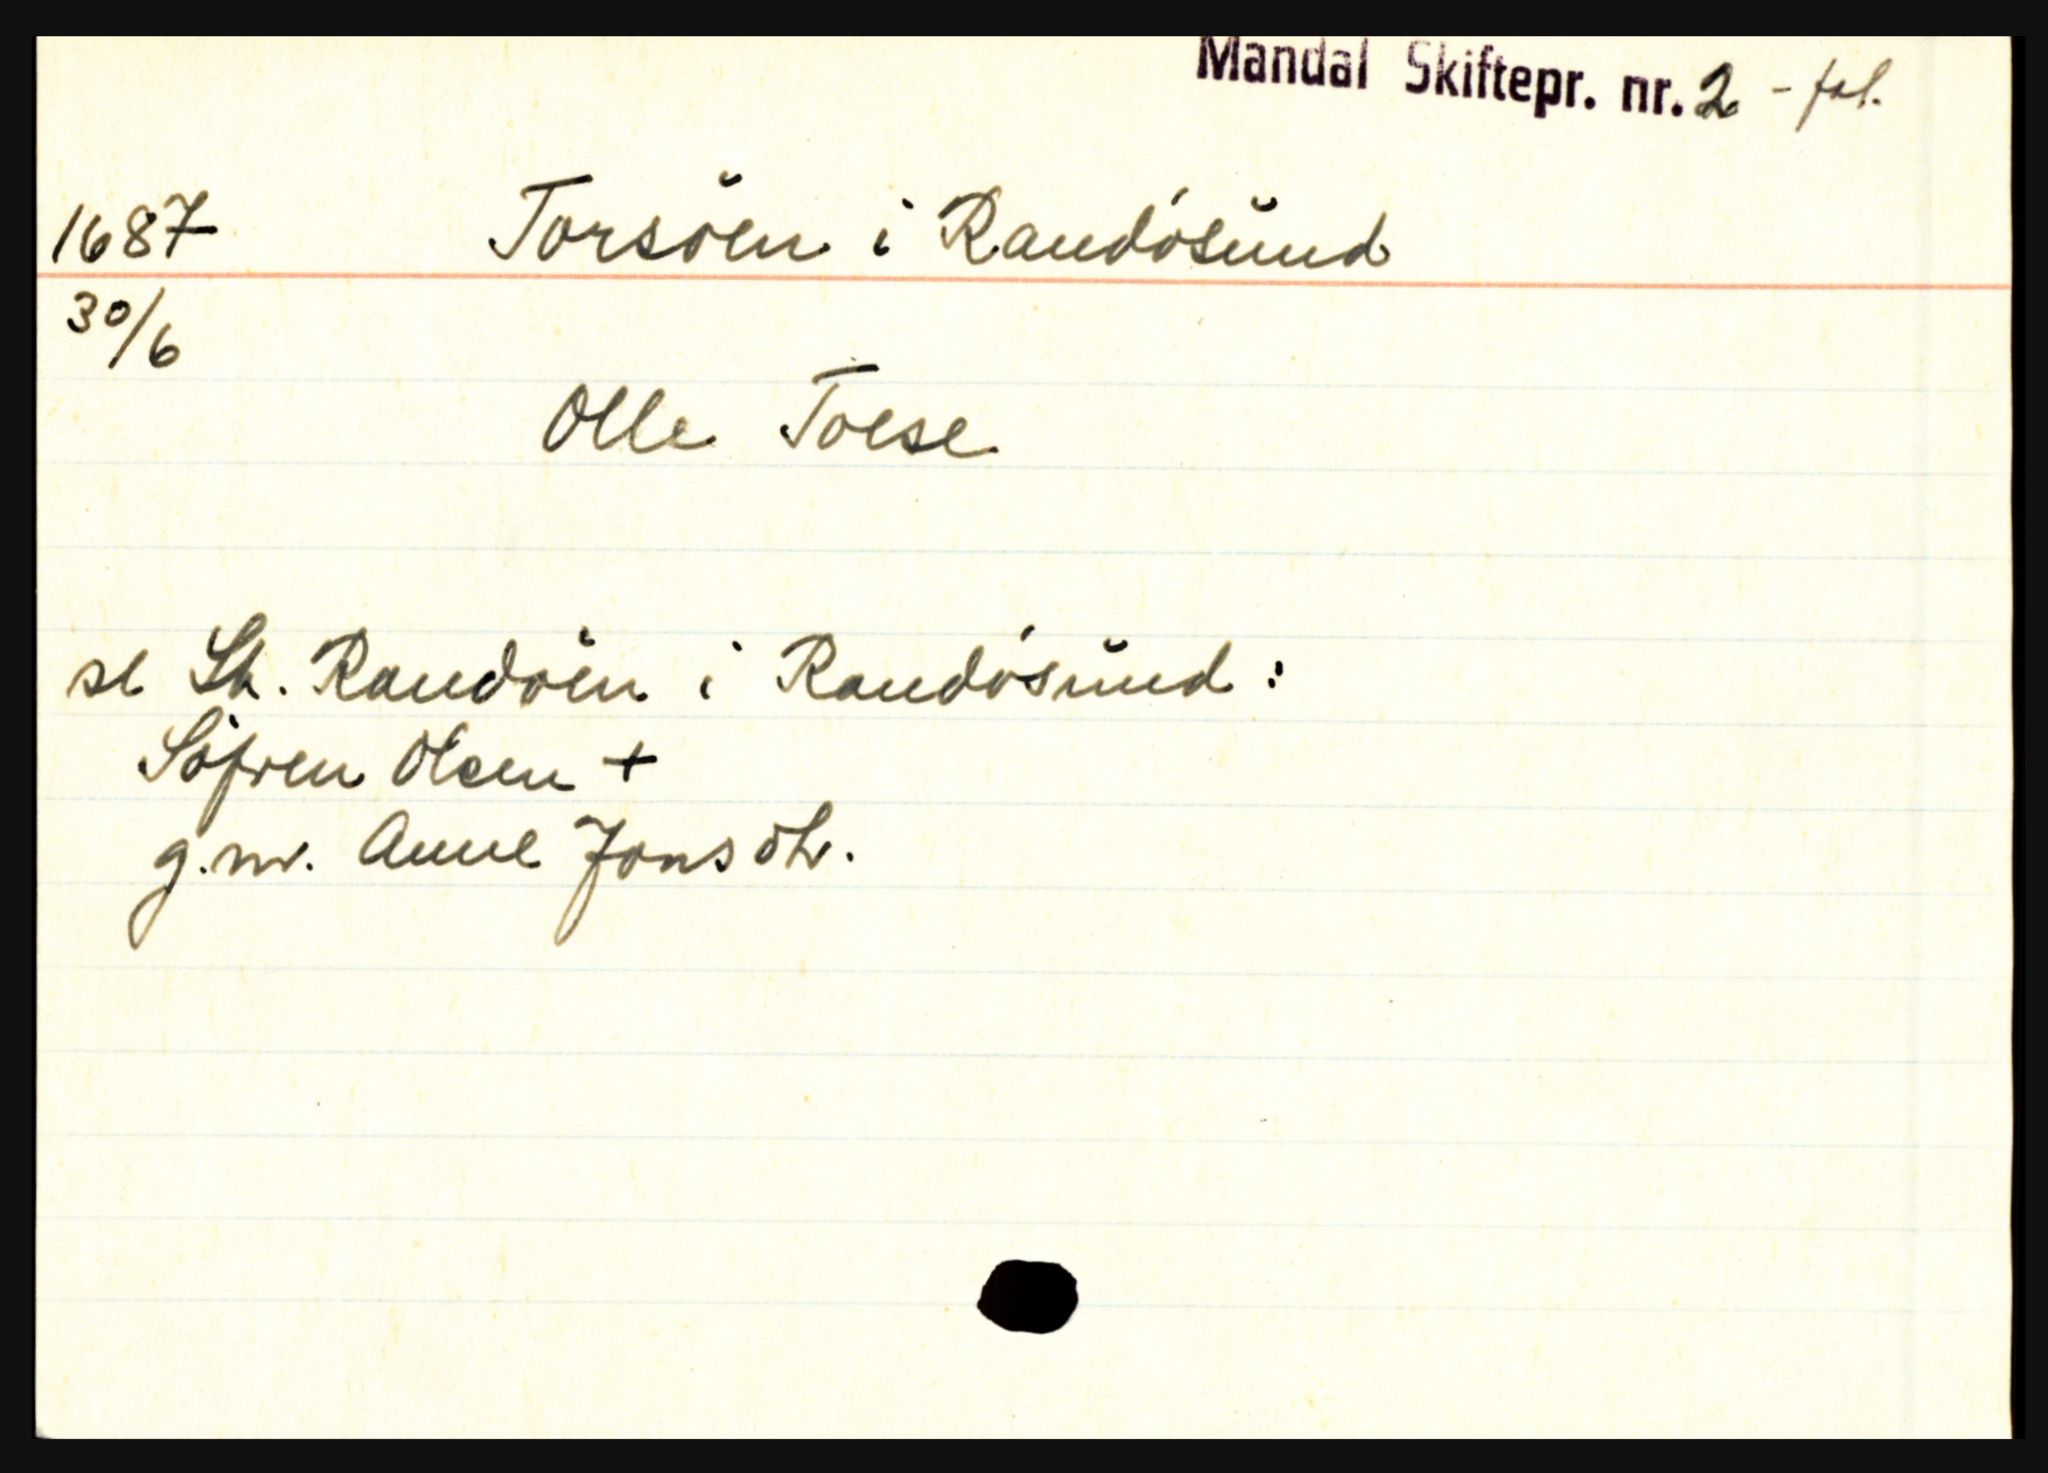 Mandal Skiftepr. nr. 2 - fol.
1687 Torsöen i Randósund
30/6
Olle Toese
se Randöen i Randósund:
Söfren Olsen +
g.m. Anne Jonsdtr.